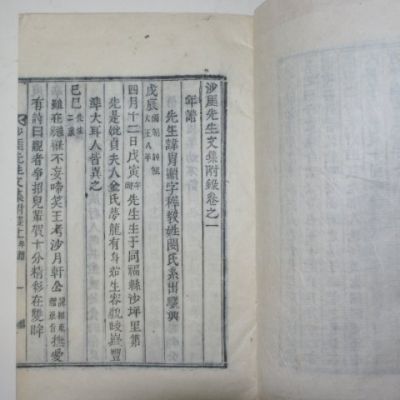 沙厓先生文集附錄卷之一
年譜
先生諱胄顯字稚敎姓閔氏系出驪興
戊辰 大王八年
四月十二日戊寅 先生生于同福縣沙坪里第
先是妣貞夫人金氏夢龍有身 生容觀峻嶷豐
準大耳人皆異之
己巳 先生二歲
雖在襁褓不妄啼笑王考沙月軒公 撫愛
有詩曰觀者爭招兒輩 十分精彩在雙眸
沙厓先生文集附錄 一